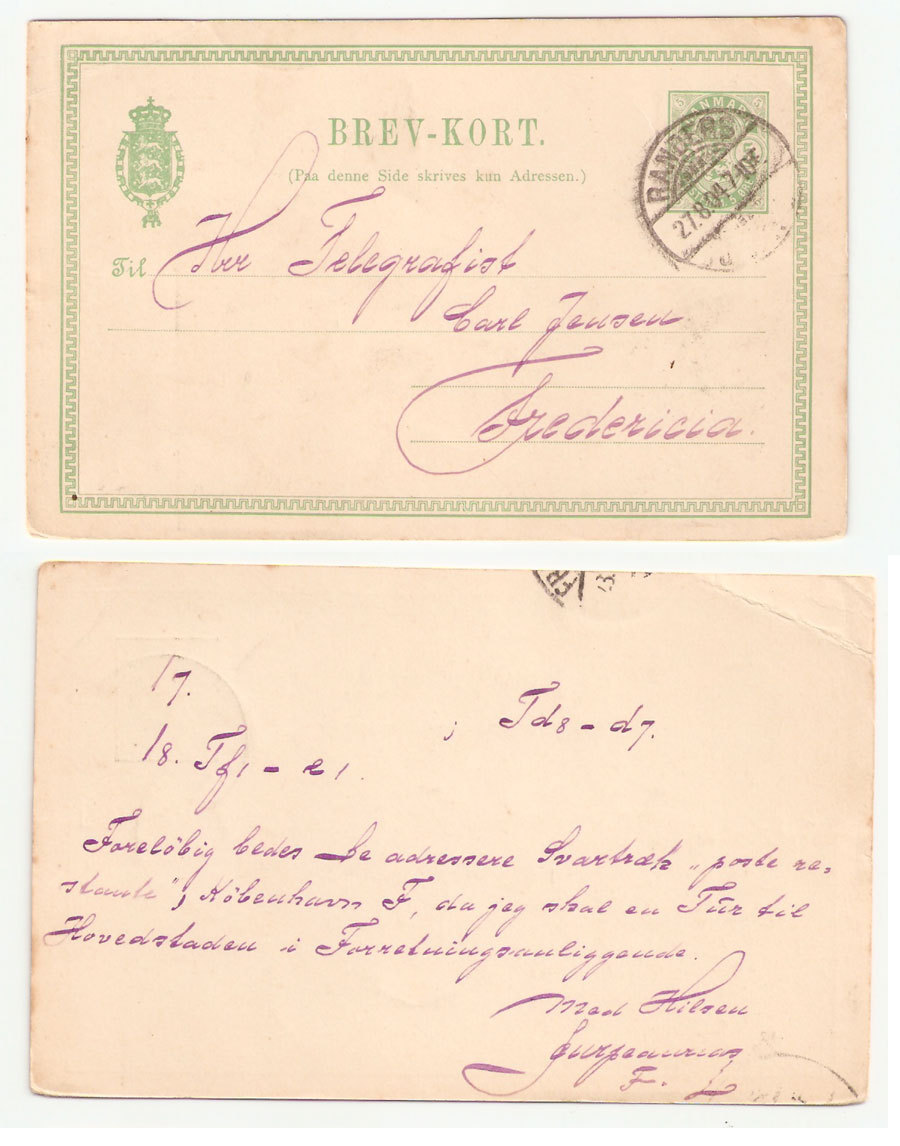 BREV-KORT.
(Paa denne Side skrives kun Adressen.)
DANMARK
RANDERS
27.8.04.7-10F
Til Herr Telegrafist
Carl Jensen
Fredericia.
17.
; Td8 - d7.
18. Tf1 - e1.
Foreløbig bedes De adressere Svartræk „poste re-
stante”, København F, da jeg skal en Tur til
Hovedstaden i Forretningsanliggende.
Med Hilsen
F.